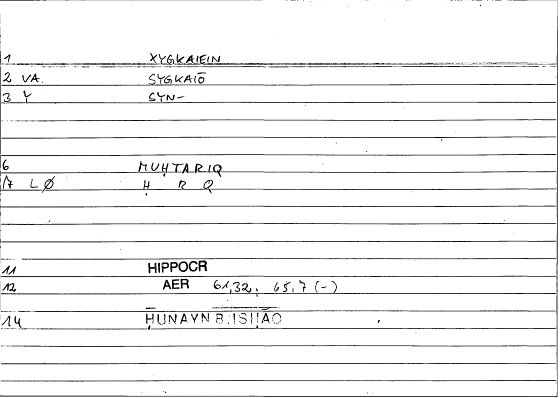 1 XYGKAIEIN
2 VA. SYGKAIŌ
3 Y SYN-
6 MUḤTARIQ
7 LØ Ḥ R Q
11 HIPPOCR
12 AER 61,32; 65,7 (-)
14 ḤUNAYN B. ISḤĀQ